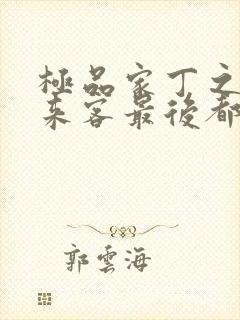 極品家丁之
來客最後都
郭雲海